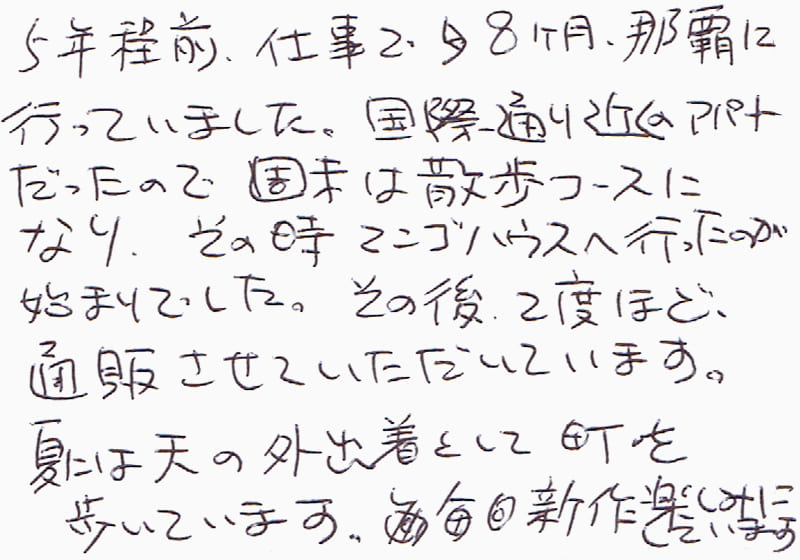 5年程前、仕事で 8ヶ月、那覇に
行っていました。国際通り近くのアパート
だったので 週末は散歩コースに
なり、その時マンゴハウスへ行ったのが
始まりでした。その後、2度ほど、
通販させていただいています。
夏には天の外出着として町を
歩いています。毎回新作楽しみにしています